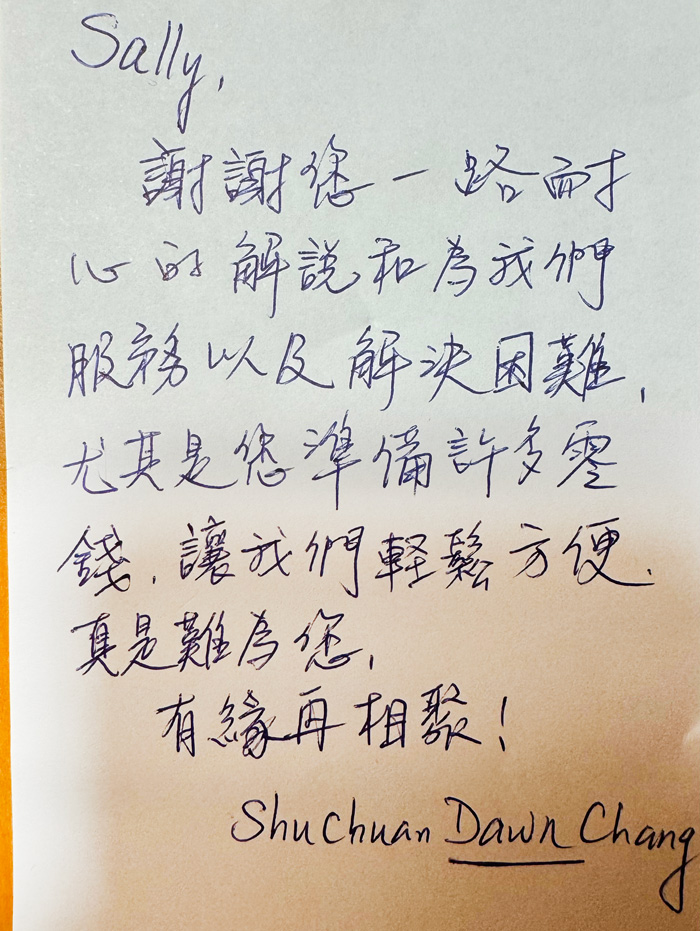 Sally,
謝謝您一路而耐
心的解説和為我們
服務以及解決困難,
尤其是您準備許多零
錢,讓我們軽鬆方便.
真是難為您,
有緣再相聚!
Shu Chuan Dawn Chang